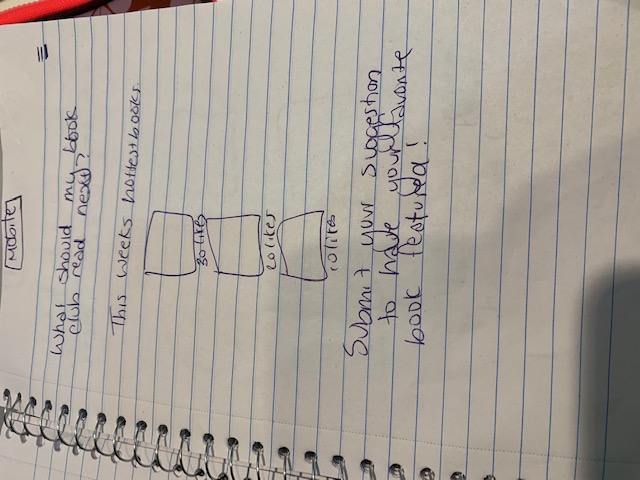 Mobile
What should my book
club read next?
This weeks hottest books.
30 likes
20 likes
10 likes
Submit your suggestion
to have your favorite
book featured!